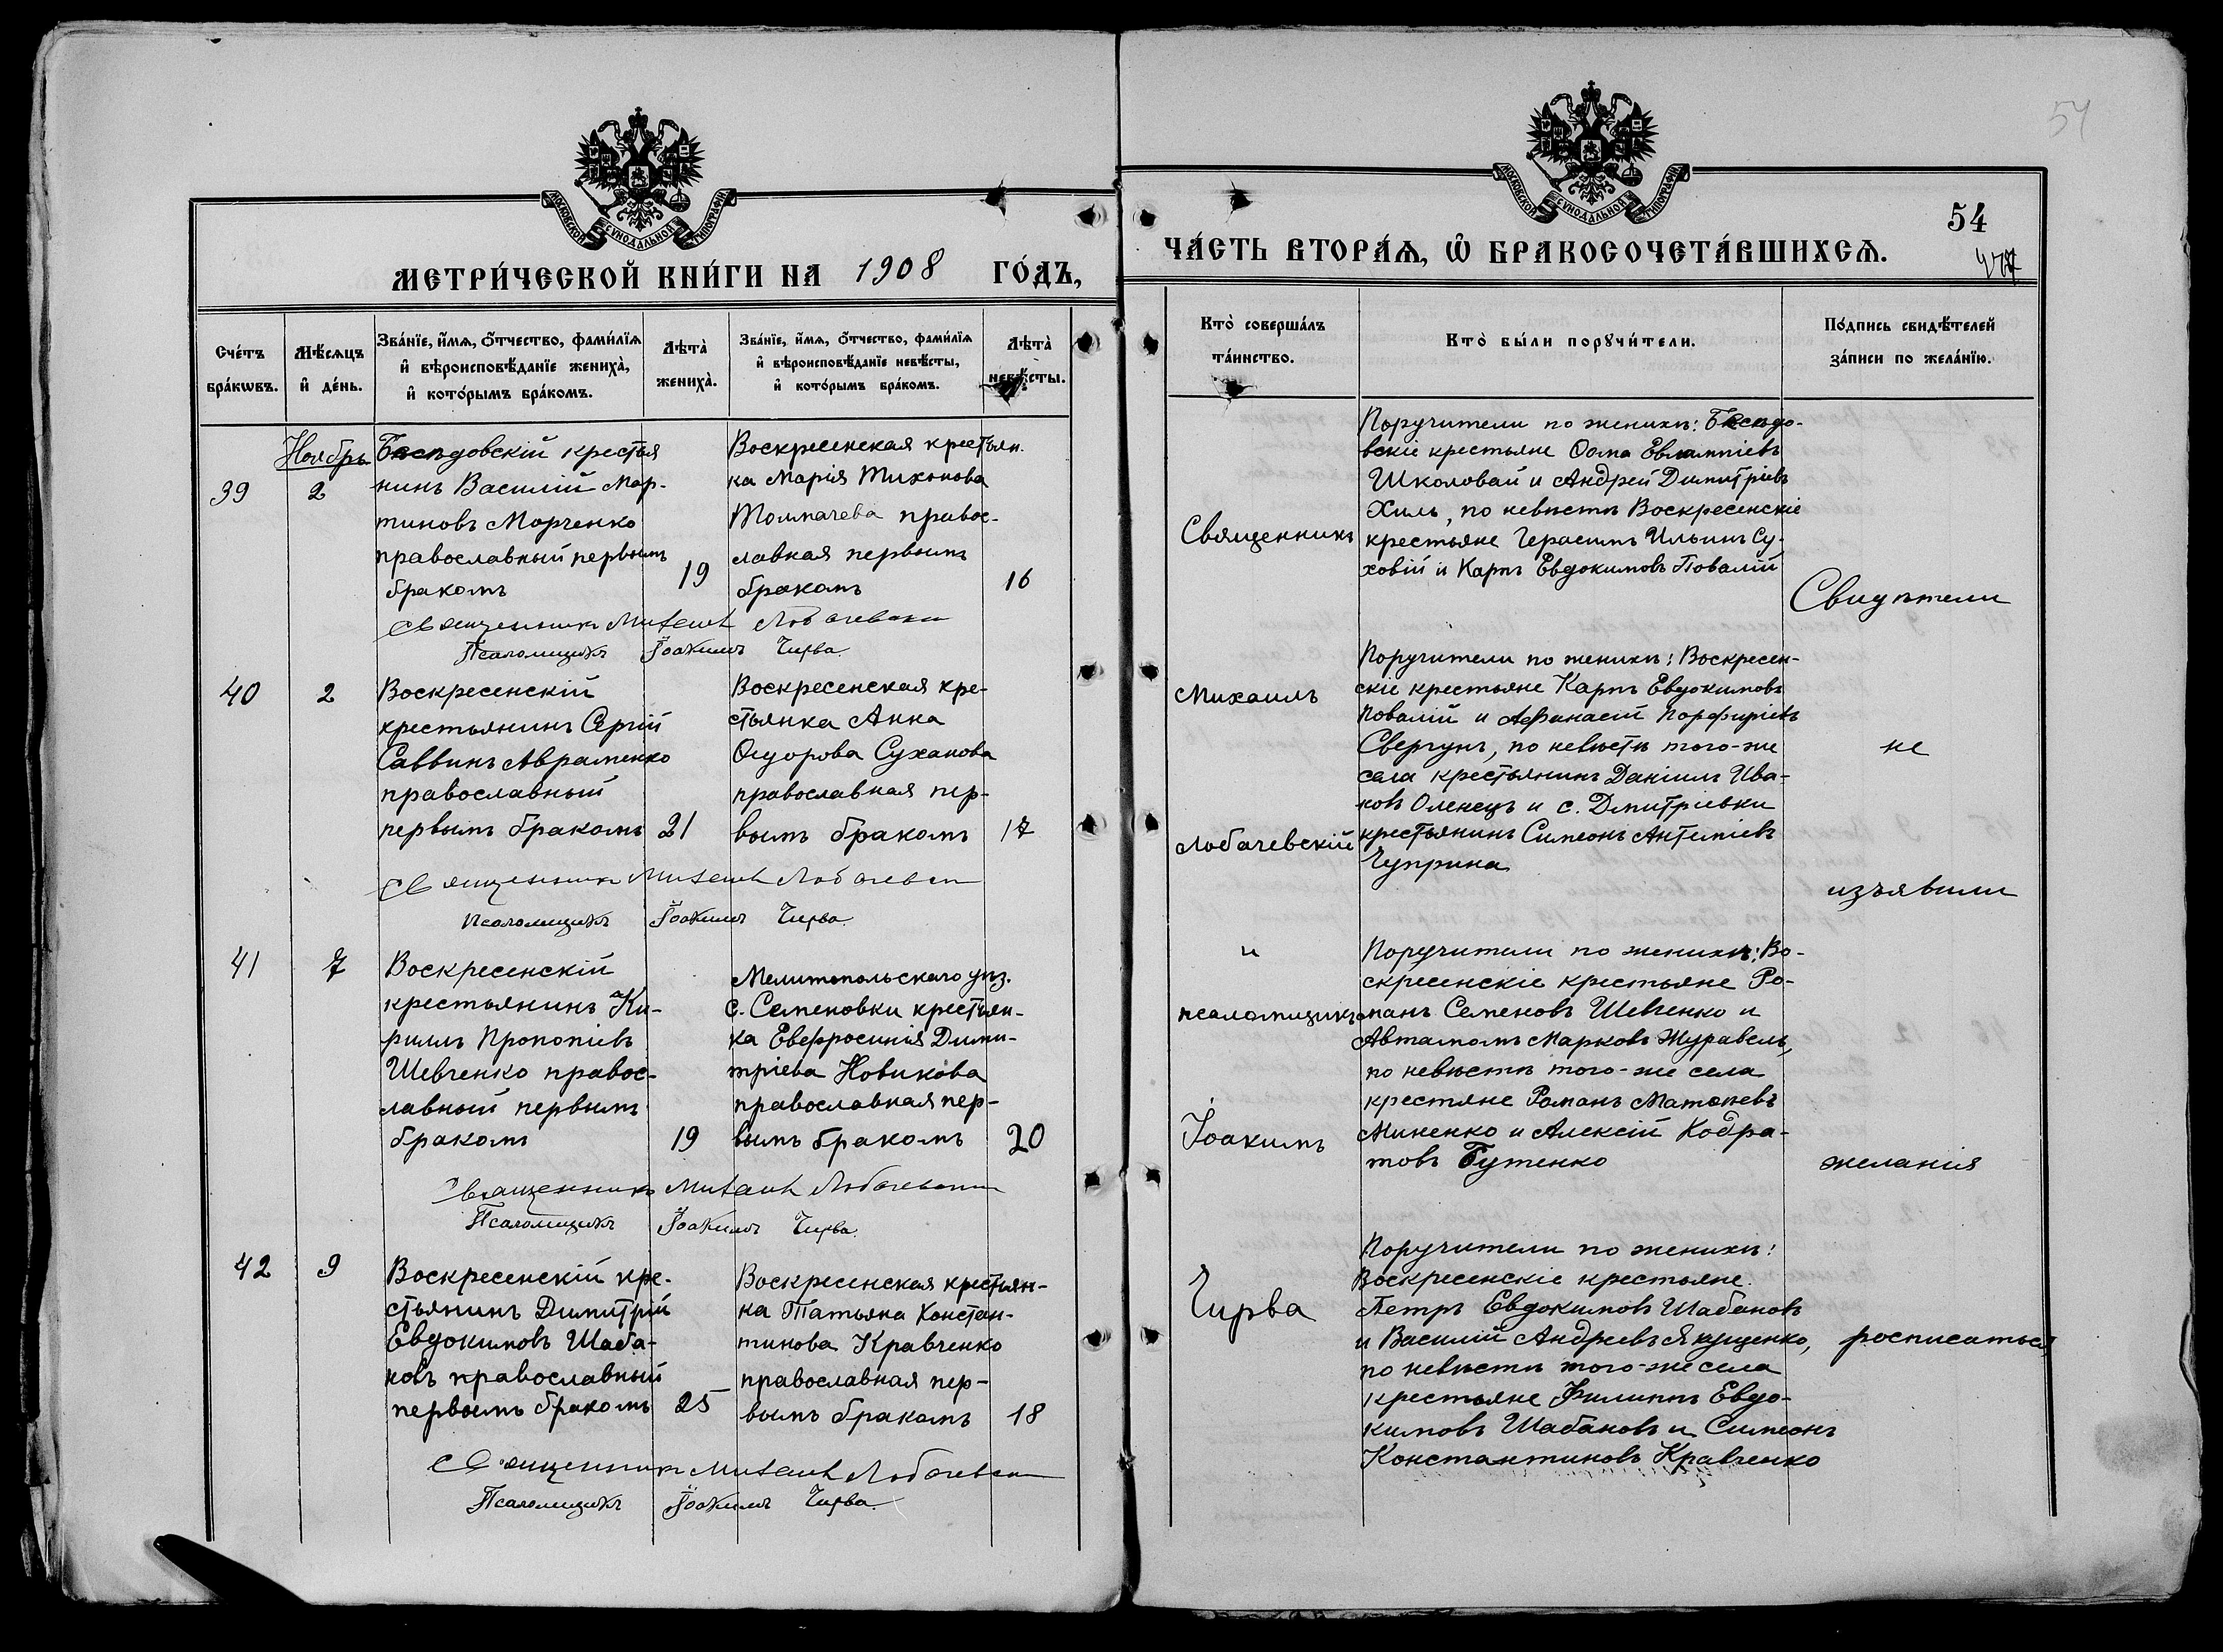 МОСКОВСКОЙ СѴНОДАЛЬНОЙ ТИПОГРАФІИ
МЕТРИ́ЧЕСКОЙ КНИ́ГИ НА 1908 ГО́ДЪ,
Сче́тъ бра́кωвъ.
Мѣ́сѧцъ и҆ де́нь.
Зва́нїе, и҆́мѧ, ѻ҆́тчество, фами́лїѧ
и҆ вѣроисповѣ́данїе жениха̀,
и҆ кото́рымъ бра́комъ.
Лѣта̀ жениха̀.
Зва́нїе, и҆́мѧ, ѻ҆́тчество, фами́лїѧ
и҆ вѣроисповѣ́данїе невѣ́сты,
и҆ кото́рымъ бра́комъ.
Лѣта̀ невѣ́сты.
Ноябрь
39
2
Бесѣдовскій крестья
нинъ Василій Мар-
тиновъ Марченко
православный первымъ
бракомъ
19
Воскресенская крестьян.
ка Марія Тихонова
Толмачева правос-
лавная первымъ
бракомъ
16
Священникъ Михаилъ Лобачевскій
Псаломщикъ Іоакимъ Чирва.
40
2
Воскресенскій
крестьянинъ Сергій
Саввинъ Авраменко
православный
первымъ бракомъ
21
Воскресенская кре-
стьянка Анна
Ѳедорова Суханова
православная пер-
вымъ бракомъ
17
Священникъ Михаилъ Лобачевскій
Псаломщикъ Іоакимъ Чирва.
41
7
Воскресенскій
крестьянинъ Ки-
риллъ Прокопіевъ
Шевченко правос-
лавный первымъ
бракомъ
19
Мелитопольскаго уѣз.
с. Семеновки крестьян-
ка Евфросинія Дими-
тріева Новикова
православная пер-
вымъ бракомъ
20
Священникъ Михаилъ Лобачевскій
Псаломщикъ Іоакимъ Чирва.
42
9
Воскресенскій кре-
стьянинъ Димитрій
Евдокимовъ Шаба-
новъ православный
первымъ бракомъ
25
Воскресенская крестьян-
ка Татьяна Констан-
тинова Кравченко
православная пер-
вымъ бракомъ
18
Священникъ Михаилъ Лобачевскій
Псаломщикъ Іоакимъ Чирва.
54
МОСКОВСКОЙ СѴНОДАЛЬНОЙ ТИПОГРАФІИ
54
ЧА́СТЬ ВТОРА́Ѧ, Ѡ҆ БРАКОСОЧЕТА́ВШИХСѦ.
Кто̀ соверша́лъ
та́инство.
Кто̀ бы́ли порꙋчи́тели.
По́дпись свидѣ́телей
за́писи по жела́нїю.
Священникъ
Михаилъ
Лобачевскій
и
псаломщикъ
Іоакимъ
Чирва
Поручители по женихѣ: Бесѣдо-
вскіе крестьяне Ѳома Евлампіевъ
Школовай и Андрей Димитріевъ
Хиль, по невѣстѣ Воскресенскіе
крестьяне Герасимъ Ильинъ Су-
ховій и Карпъ Евдокимовъ Повалій
Поручители по женихѣ: Воскресен-
скіе крестьяне Карпъ Евдокимовъ
Повалій и Афанасій Порфиріевъ
Свергунъ, по невѣстѣ того-же
села крестьянинъ Даніилъ Ива-
новъ Оленецъ и с. Дмитріевки
крестьянинъ Симеонъ Антипіевъ
Чуприна
Поручители по женихѣ: Во-
скресенскіе крестьяне Ро-
манъ Семеновъ Шевченко и
Автамомъ Марковъ Журавель,
по невѣстѣ того-же села
крестяне Романъ Матѳѣевъ
Миненко и Алексій Кодра-
товъ Бутенко
Поручители по женихѣ:
Воскресенскіе крестьяне
Петръ Евдокимовъ Шабановъ
и Василій Андреевъ Якущенко,
по невѣстѣ того-же села
крестьяне Филиппъ Евдо-
кимовъ Шабановъ и Симеонъ
Константиновъ Кравченко
Свидѣтели
не
изъявили
желанія
росписаться